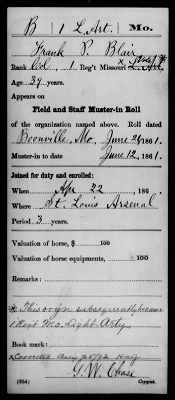 B | 1 L. Art. | Mo.
Frank P. Blair
Rank Col., 1 Reg't Missouri x
Age 39 years.
Appears on
Field and Staff Muster-in Roll
of the organization named above. Roll dated
Boonville, Mo. June 26, 1861.
Muster-in to date June 12, 1861.
Joined for duty and enrolled:
When Apr 22, 186 .
Where St. Louis Arsenal
Period 3 years.
Valuation of horse, $ 100
Valuation of horse equipments, $ 100
Remarks:
* This orgn subsequently became
1 Regt Mo. Light Arty.
Book mark:
x Corrected
G. W. Chase
(354) Copyist.